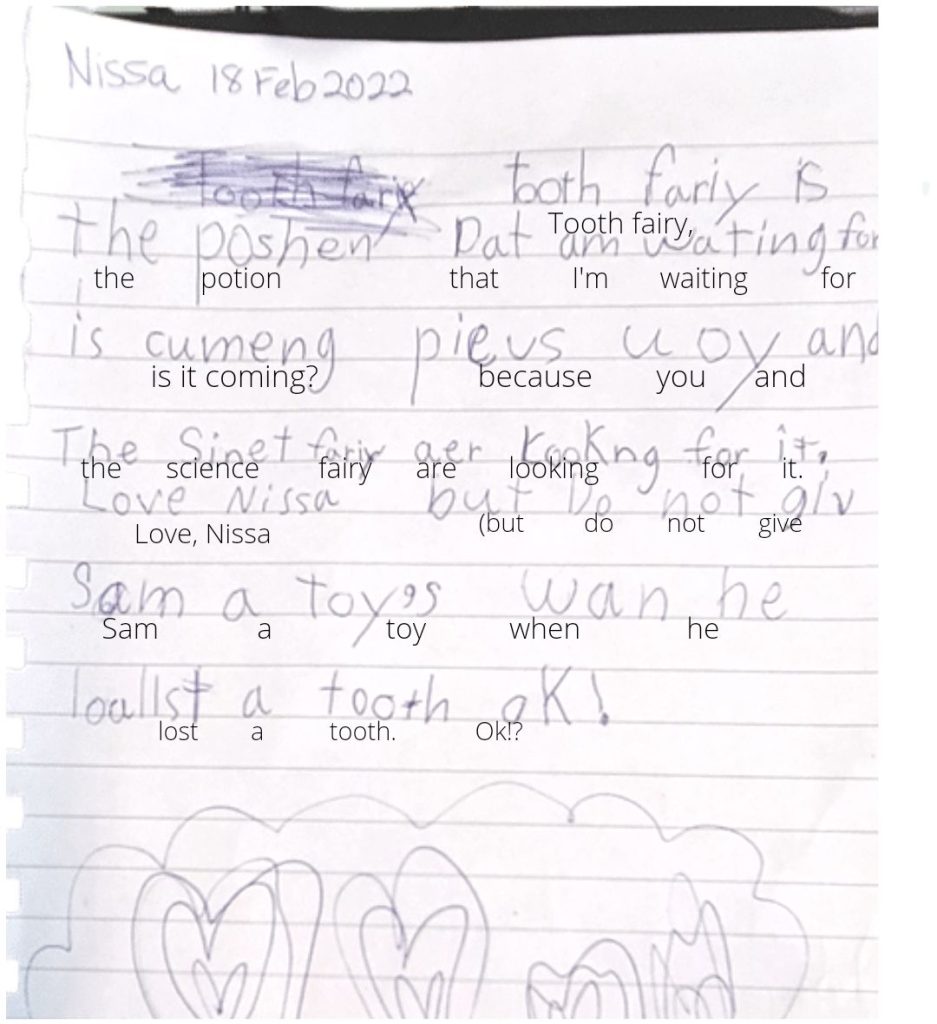 Nissa 18 Feb 2022
Tooth farix tooth fariy is
Tooth fairy,
the poshen Dat am wating for
the potion that I'm waiting for
is cumeng pievs uoy and
is it coming? because you and
The Sinet fariy aer Lookng for it.
the science fairy are looking for it.
Love Nissa but Do not giv
Love, Nissa (but do not give
Sam a Toy's wan he
Sam a toy when he
loallst a tooth oK!
lost a tooth. Ok!?